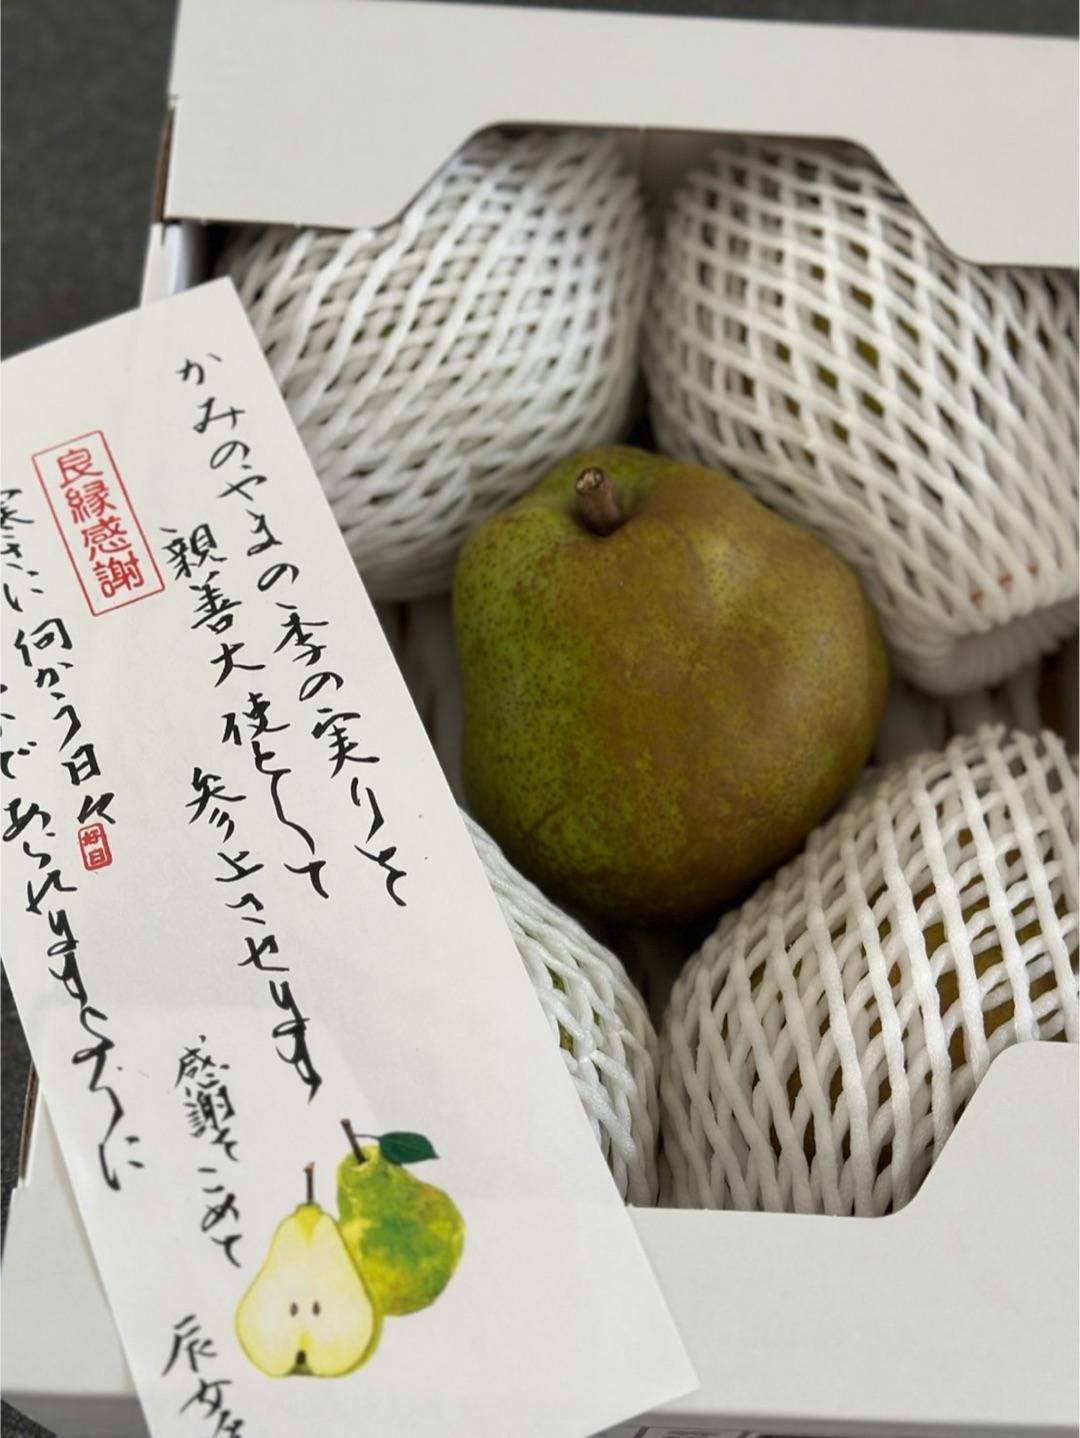 かみのやまの季の実りを
親善大使として
参上させます
良縁感謝
寒さに向かう日々
好日
であられますように
感謝をこめて
辰